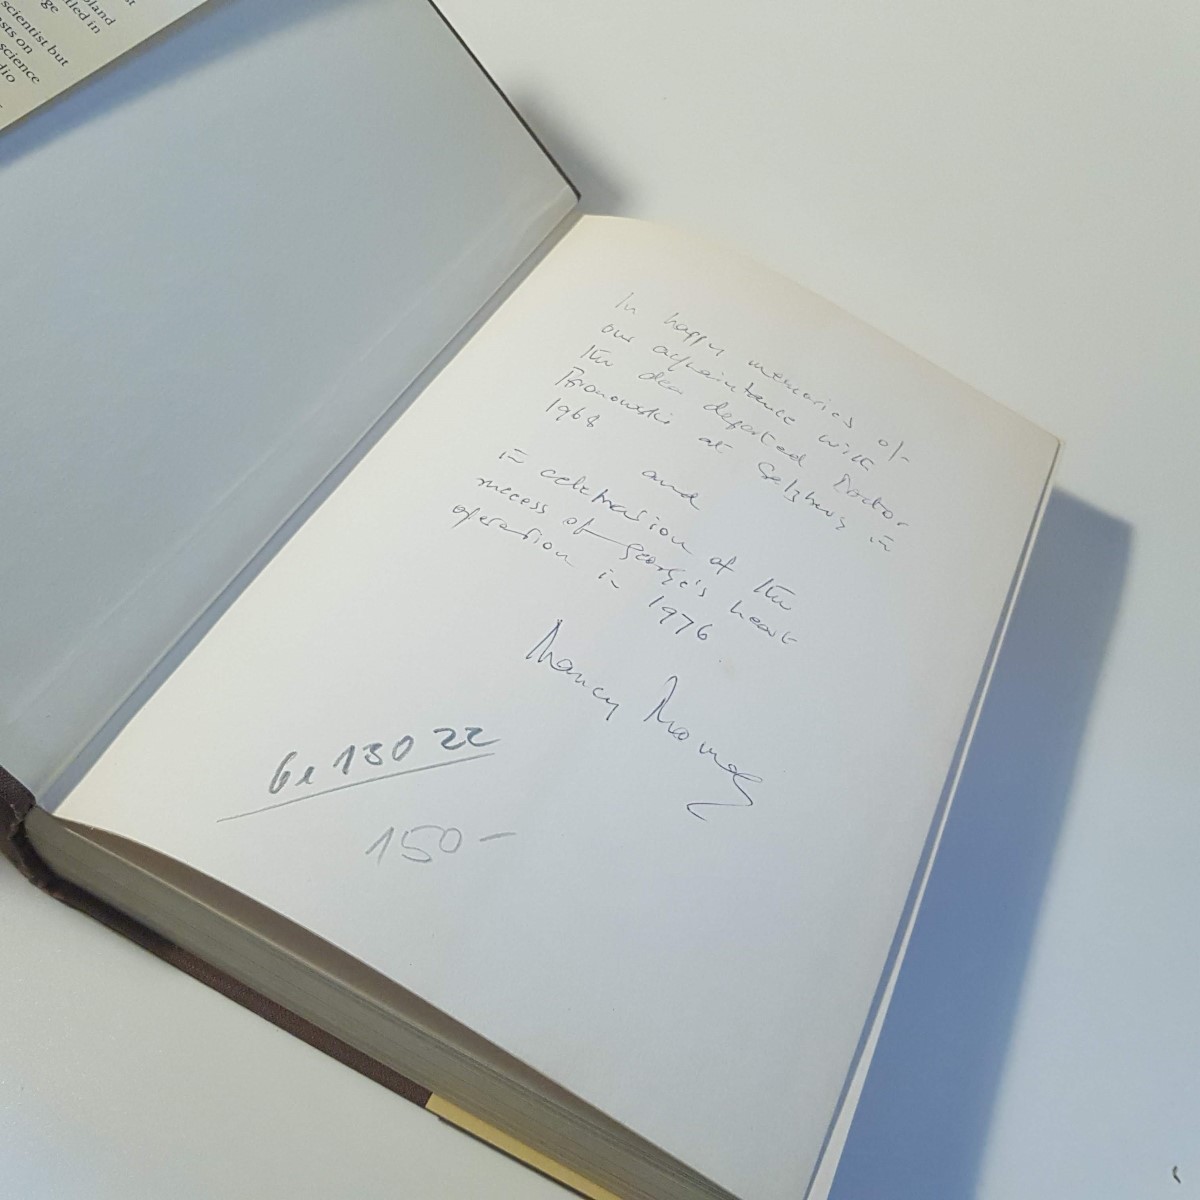 land
ge
tled in
scientist but
sts on
science
dio
In happy memories of
our acquaintance with
the dear departed Doctor
Bronowski at Salzburg in
1968
and
in celebration of the
success of George's heart
operation in 1976
Nancy
150-